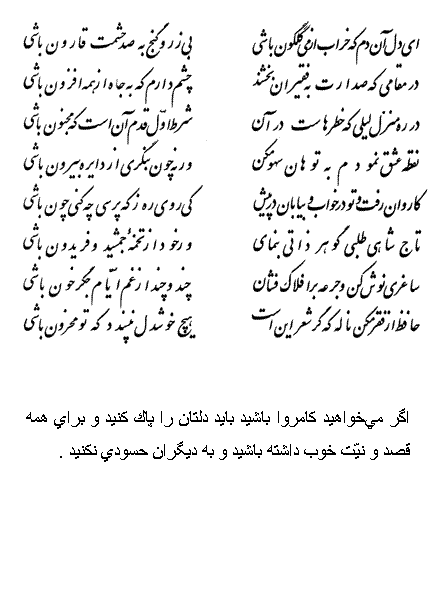 ای دل آن دم که خراب از می گلگون باشی بی زر و گنج به صد حشمت قارون باشی
در مقامی که صدارت به فقیران بخشند چشم دارم که به جاه از همه افزون باشی
در ره منزل لیلی که خطرهاست در آن شرط اوّل قدم آن است که مجنون باشی
نقطه عشق نمودم به تو هان سهو مکن ورنه چون بنگری از دایره بیرون باشی
کاروان رفت و تو در خواب و بیابان در پیش کی روی ره ز که پرسی چه کنی چون باشی
تاج شاهی طلبی گوهر ذاتی بنمای ور خود از تخمهٔ جمشید و فریدون باشی
ساغری نوش کن و جرعه بر افلاک فشان چند و چند از غم ایّام جگر خون باشی
حافظ از فقر مکن ناله که گر شعر این است هیچ خوشدل نپسندد که تو محزون باشی
اگر مي‌خواهيد کامروا باشيد بايد دلتان را پاك کنيد و براي همه
قصد و نيّت خوب داشته باشيد و به ديگران حسودي نکنيد .